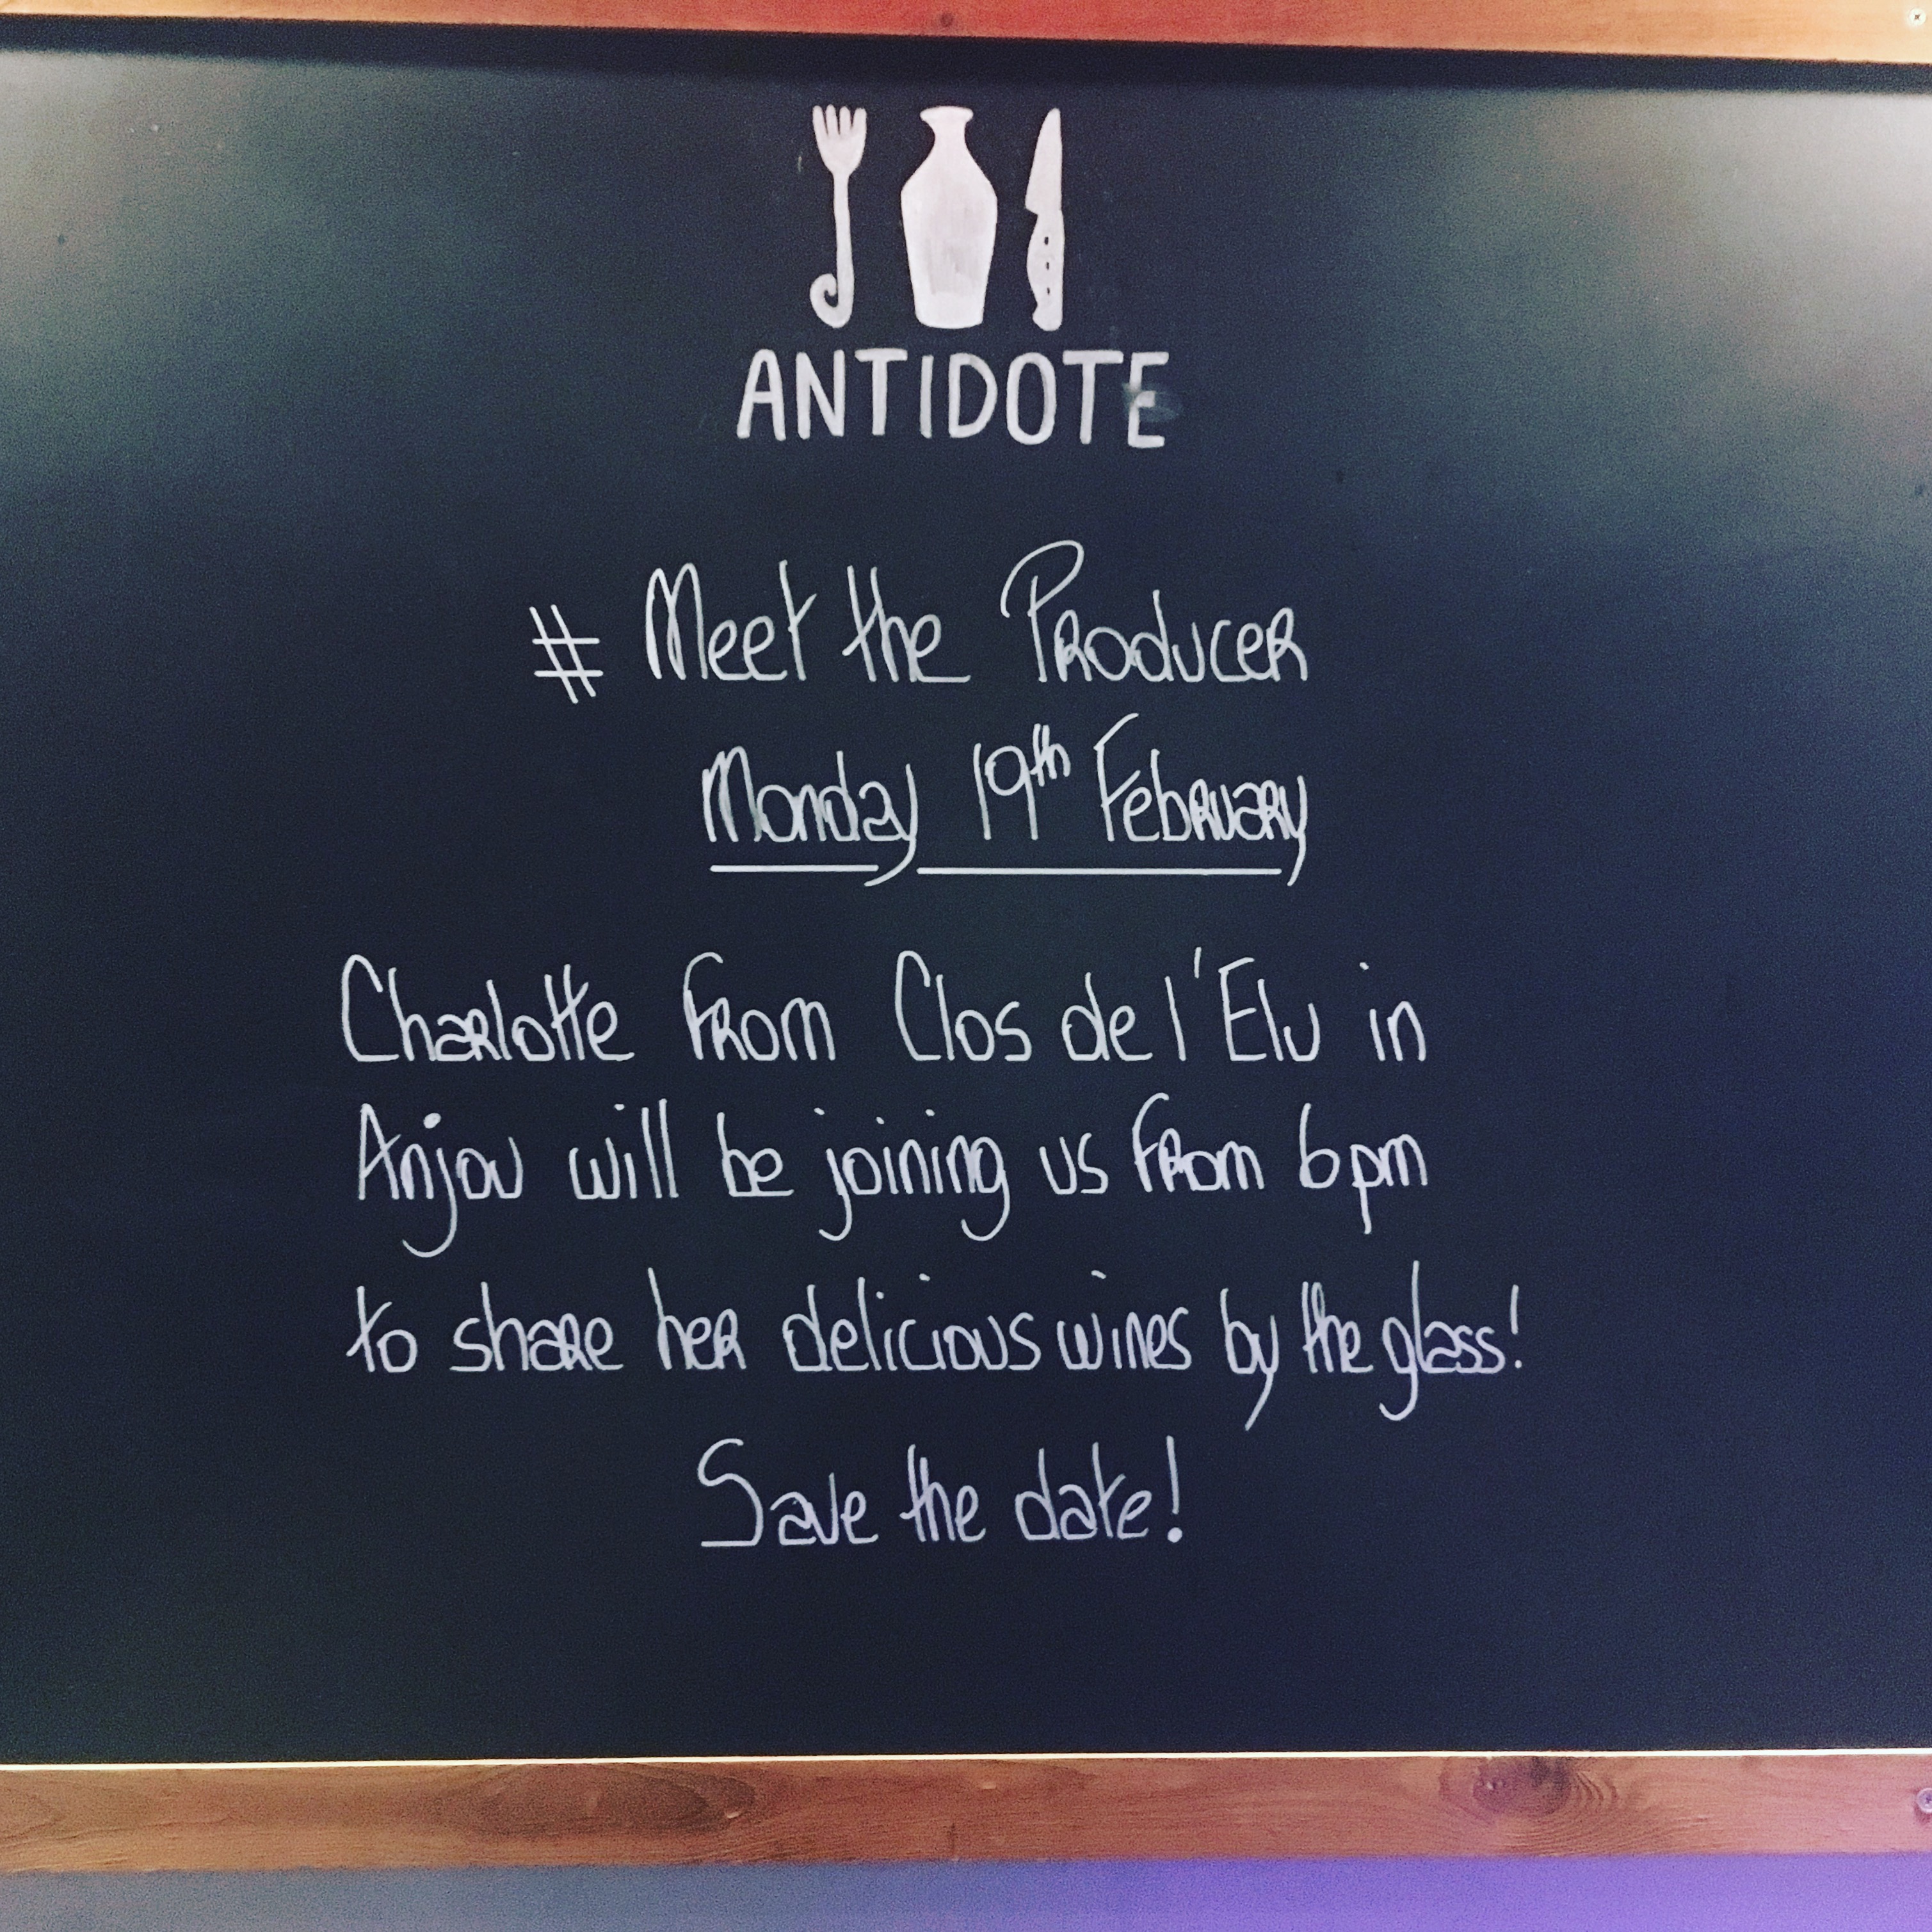 ANTIDOTE
# Meet the Producer
Monday 19th February
Charlotte from Clos de l'Elu in
Anjou will be joining us from 6pm
to share her delicious wines by the glass!
Save the date!